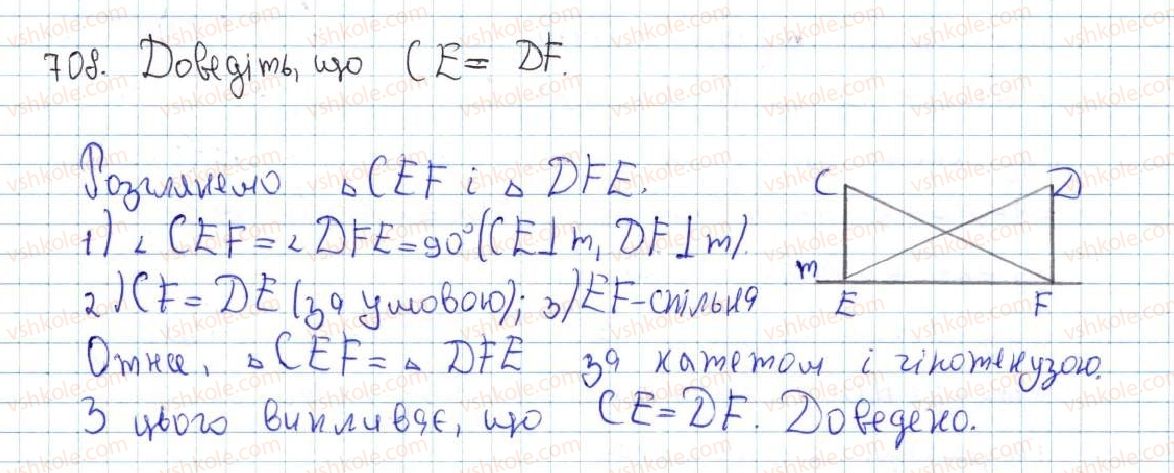 708. Доведіть, що CE = DF.
Розглянемо △CEF і △DFE.
1) ∠CEF = ∠DFE = 90° (CE⊥m, DF⊥m).
2) CF = DE (за умовою); 3) EF - спільна
Отже, △CEF = △DFE за катетом і гіпотенузою.
З цього випливає, що CE = DF. Доведено.
C D
m
E F
vshkole.com